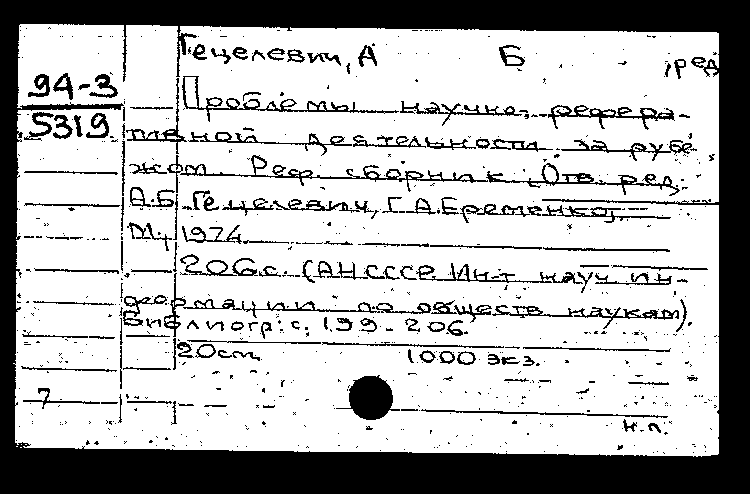 Гецелевич, А Б ,ред
94-3
5319
Проблемы научно-рефера-
тивной деятельности за рубе
жом. Реф. сборник. [Отв. ред.
А.Б. Гецелевич, Г.А.Еременко].
М., 1974.
206с. (АН СССР. Ин-т науч. ин-
формации по обществ. наукам).
Библиогр.: с. 199-206.
20см. 1000 экз.
7
н.п.